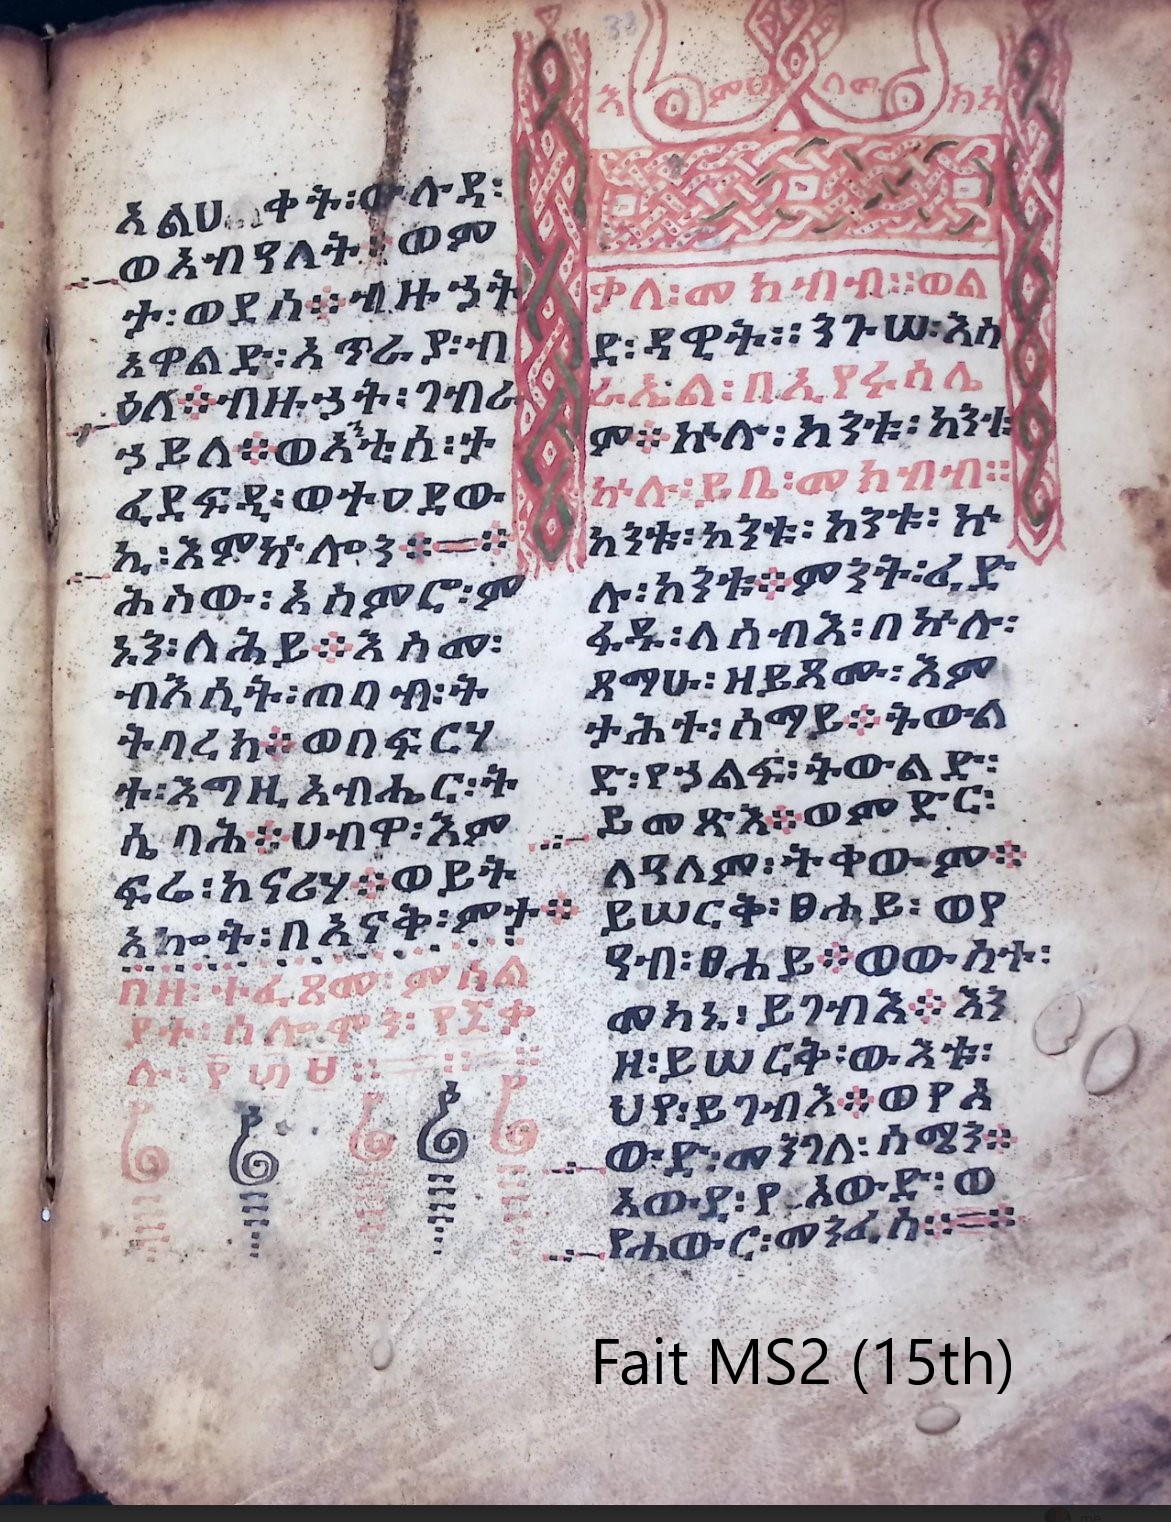 ወአብዓለት፡ ወም
ታ፡ወደሰ። ብዙኃት
አዋልድ፡አጥራያ፡ብ
ዕለ፨ብዙኃት፡ገብራ
ኃይለ፨ወአንቲሰ፡ት
ፈደፍዲ፡ወተዐደው
ኪ፡እምኵሎን፨
ሕስው፡አስምሮ፡ም
ኔን፡ለሕይ፨እስመ፡
ብእሲት፡ጠባብ፡ት
ትባረክ፨ወበፍርሃ
ተ፡እግዚአብሔር፡ት
ሴባሕ፨ሀብዋ፡እም
ፍሬ፡ከናሪሃ፨ወይት
አኰት፡በአናቅ፡ምታ፨
በዘ፡ተፈጸመ፡ምሳል
ያተ፡ሰሎሞን፡
ቃለ፡መክብብ።ወል
ድ፡ዳዊት። ንጉሠ፡እስ
ራኤል፡በኢየሩሳሌ
ም፨ኵሉ፡ከንቱ፡ከንቱ፡
ኵሉ፡ይቤ፡መክብብ።
ከንቱ፡ከንቱ፡ከንቱ፡ኵ
ሉ፡ከንቱ፨ምንት፡ፈድ
ፋዱ፡ለሰብእ፡በኵሉ፡
ጻማሁ፡ዘይጻሙ፡እም
ታሕተ፡ሰማይ፨ትውል
ድ፡የኃልፍ፡ትውልድ፡
ይመጽእ፨ወምድር፡
ለዓለም፡ትቀውም፨
ይሠርቅ፡ፀሐይ፡ ወየ
ዓብ፡ፀሐይ፨ወውስተ፡
መካኑ፡ይገብእ፨እን
ዘ፡ይሠርቅ፡ውእቱ፡
ህየ፡ይገብእ፨ወየአ
ውድ፡መንገለ፡ሰሜን፨
አውዶ፡የአውድ፡ወ
የሐውር፡መንፈስ፨
Fait MS2 (15th)